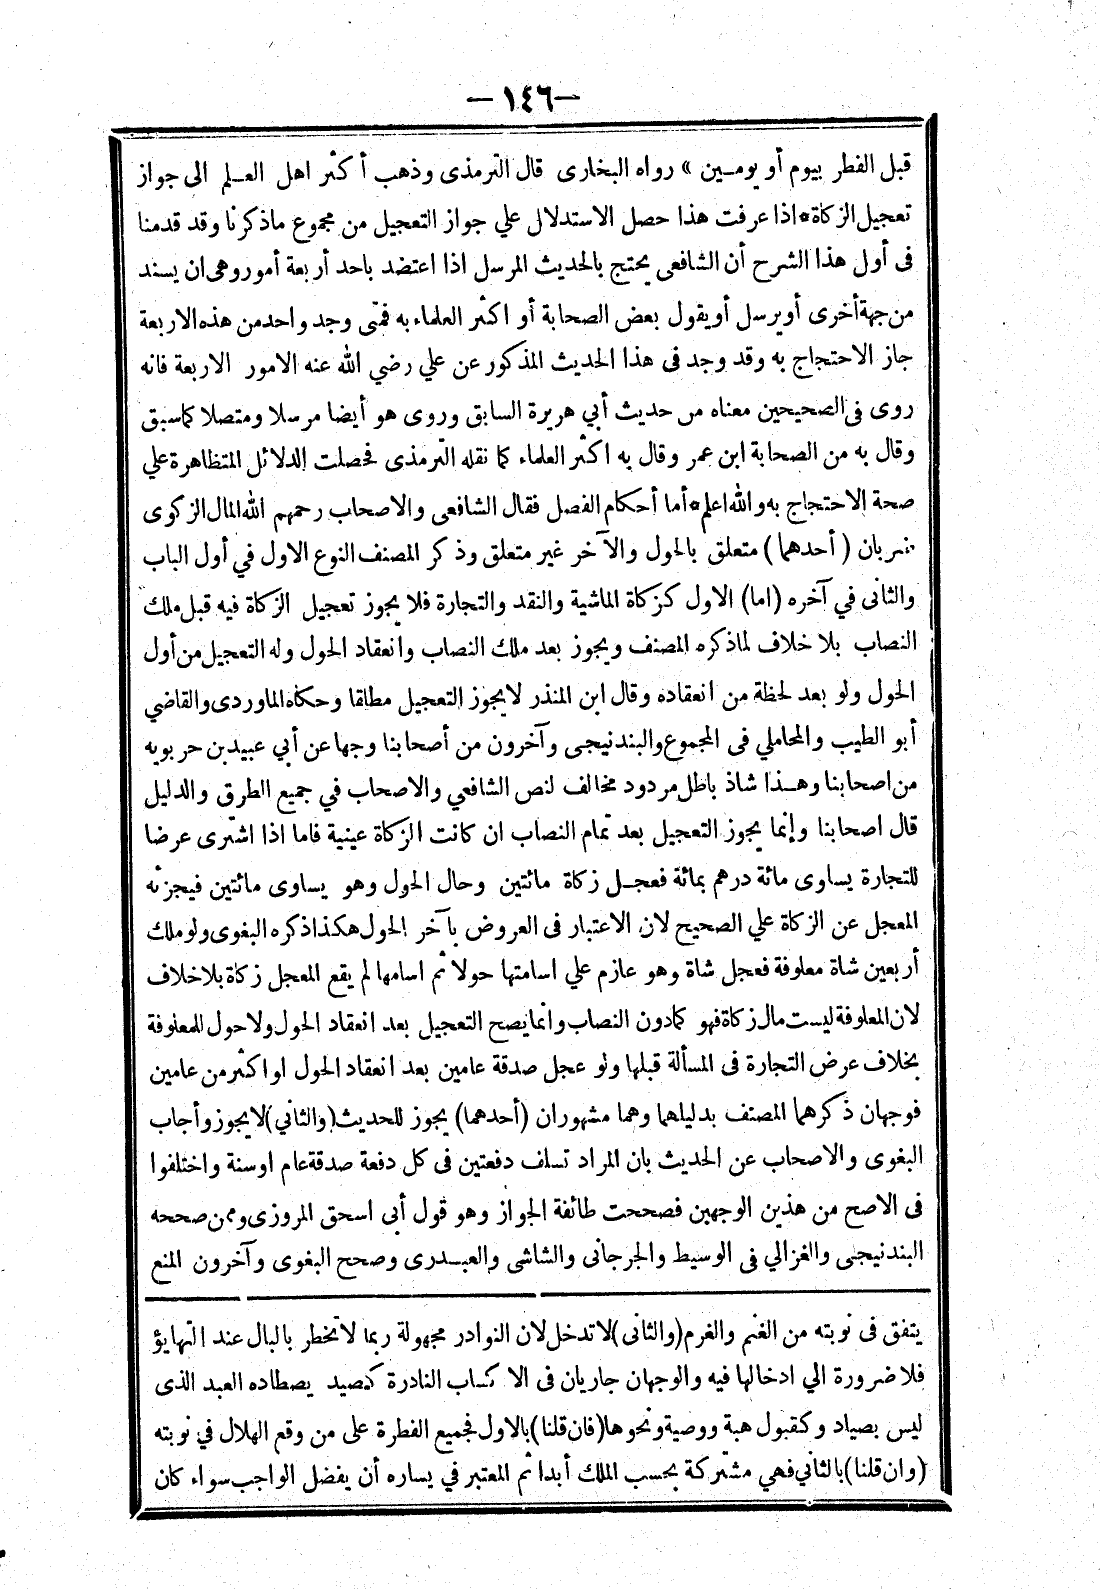 -١٤٦-
قبل الفطر بيوم أو يومــين » رواه البخارى قال الترمذى وذهب أكثر اهل العــلم الى جواز
تعجيل الزكاة * اذا عرفت هذا حصل الاستدلال علي جواز التعجيل من مجموع ماذكرنا وقد قدمنا
فى أول هذا الشرح أن الشافعى يحتج بالحديث المرسل اذا اعتضد باحد أربعة أمور وهى ان يسند
من جهة أخرى أو يرسل أو يقول بعض الصحابة أو اكثر العلماء به فمتى وجد واحد من هذه الاربعة
جاز الاحتجاج به وقد وجد فى هذا الحديث المذكور عن علي رضي الله عنه الامور الاربعة فانه
روى فى الصحيحين معناه من حديث أبي هريرة السابق وروى هو أيضا مرسلا ومتصلا كما سبق
وقال به من الصحابة ابن عمر وقال به اكثر العلماء كما نقله الترمذى فحصلت الدلائل المتظاهرة علي
صحة الاحتجاج به والله اعلم * أما أحكام الفصل فقال الشافعى والاصحاب رحمهم الله المال الزكوى
ضربان ( أحدهما ) متعلق بالحول والآخر غير متعلق وذكر المصنف النوع الاول في أول الباب
والثانى في آخره (اما) الاول كزكاة الماشية والنقد والتجارة فلا يجوز تعجيل الزكاة فيه قبل ملك
النصاب بلا خلاف لماذكره المصنف ويجوز بعد ملك النصاب وانعقاد الحول وله التعجيل من أول
الحول ولو بعد لحظة من انعقاده وقال ابن المنذر لا يجوز التعجيل مطلقا وحكاه الماوردى والقاضي
أبو الطيب والمحاملي فى المجموع والبندنيجى وآخرون من أصحابنا وجها عن أبي عبيد بن حربويه
من اصحابنا وهــذا شاذ باطل مردود مخالف لنص الشافعي والاصحاب في جميع الطرق والدليل
قال اصحابنا وإنما يجوز التعجيل بعد تمام النصاب ان كانت الزكاة عينية فاما اذا اشترى عرضا
للتجارة يساوى مائة درهم بمائة فعجــل زكاة مائتين وحال الحول وهو يساوى مائتين فيجزئه
المعجل عن الزكاة علي الصحيح لان الاعتبار فى العروض بآخر الحول هكذا ذكره البغوى ولو ملك
أربعين شاة معلوفة فعجل شاة وهو عازم علي اسامتها حولا ثم اسامها لم يقع المعجل زكاة بلا خلاف
لان المعلوفة ليست مال زكاة فهو كما دون النصاب وانما يصح التعجيل بعد انعقاد الحول ولا حول للمعلوفة
بخلاف عرض التجارة فى المسألة قبلها ولو عجل صدقة عامين بعد انعقاد الحول او اكثر من عامين
فوجهان ذكرهما المصنف بدليلهما وهما مشهوران (أحدهما) يجوز للحديث (والثاني) لا يجوز وأجاب
البغوى والاصحاب عن الحديث بان المراد تسلف دفعتين فى كل دفعة صدقة عام او سنة واختلفوا
فى الاصح من هذين الوجهين فصححت طائفة الجواز وهو قول أبى اسحق المروزى وممن صححه
البندنيجى والغزالي فى الوسيط والجرجانى والشاشى والعبــدرى وصحح البغوى وآخرون المنع
يتفق فى نوبته من الغنم والغرم (والثانى) لا تدخل لان النوادر مجهولة ربما لا تخطر بالبال عند التهايؤ
فلا ضرورة الي ادخالها فيه والوجهان جاريان فى الاكساب النادرة كصيد يصطاده العبد الذى
ليس بصياد وكقبول هبة ووصية ونحوها (فان قلنا) بالاول فجميع الفطرة على من وقع الهلال في نوبته
(وان قلنا) بالثاني فهي مشتركة بحسب الملك أبدا ثم المعتبر في يساره أن يفضل الواجب سواء كان